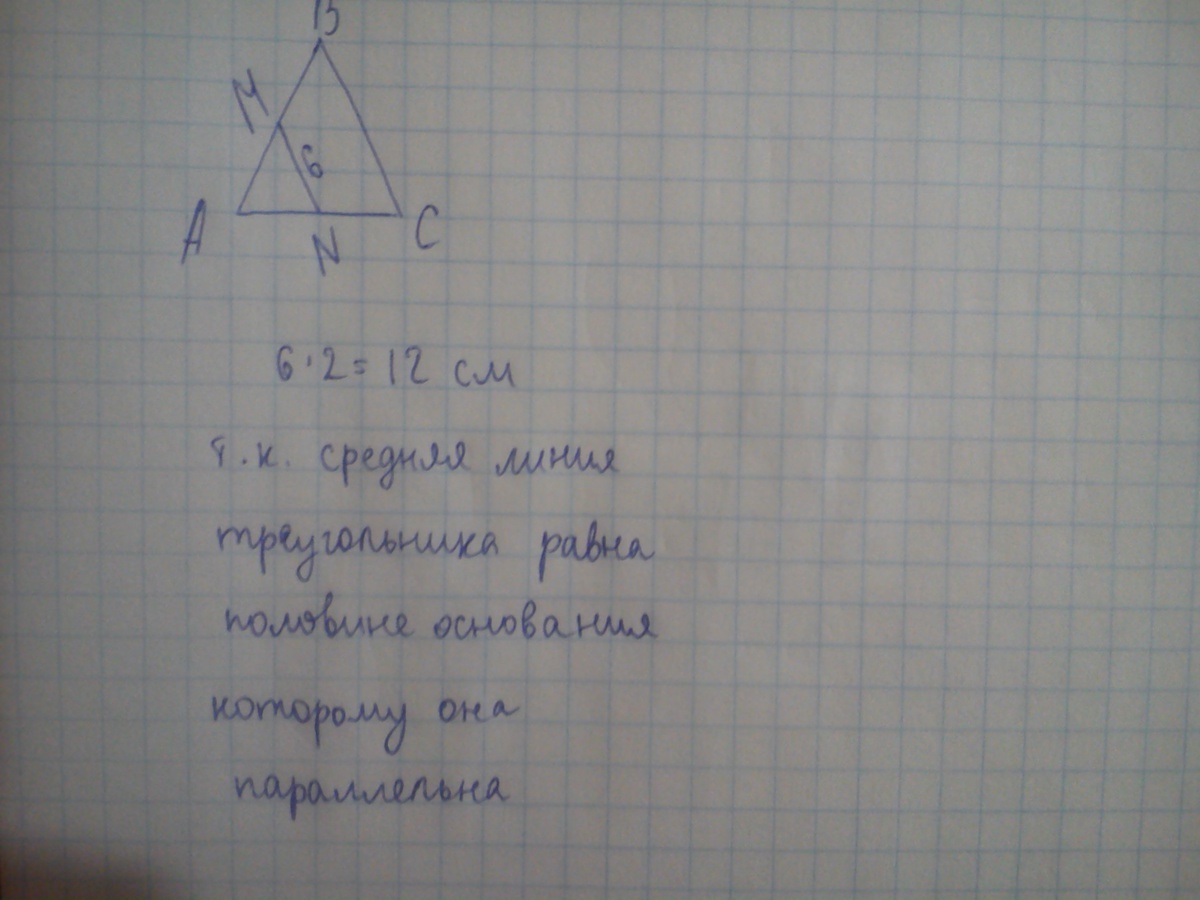 B
M
6
A
N
C
6·2=12 см
т.к. средняя линия
треугольника равна
половине основания
которому она
параллельна